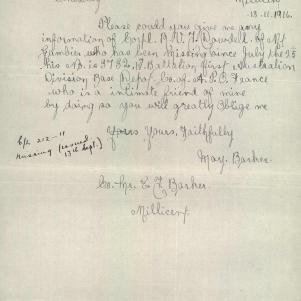 Millicent
13.11.1916.
Please could you give me some
information of Corpl. A. V. F. Dowdell. of Mt
Gambier who has been missing since July the 25
his No. is 3782. Battalion first Australian
Division Base Depot. A.P.O. France
who is a intimate friend of mine
by doing so you will greatly oblige me
Yours. Yours. Faithfully
May. Barker.
C/o. Mr. E Barker.
Millicent
C/L 212-11
Missing (issued
13th Sept.)